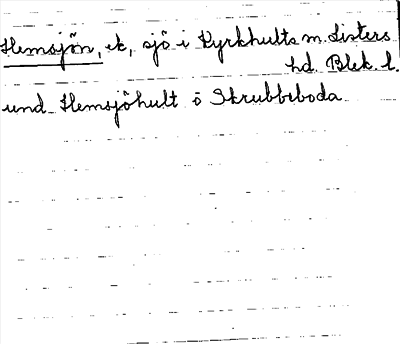 Hemsjön, ek, sjö i Kyrkhults m. Listers
hd. Blek. l.
und. Hemsjöhult ö Skrubbeboda